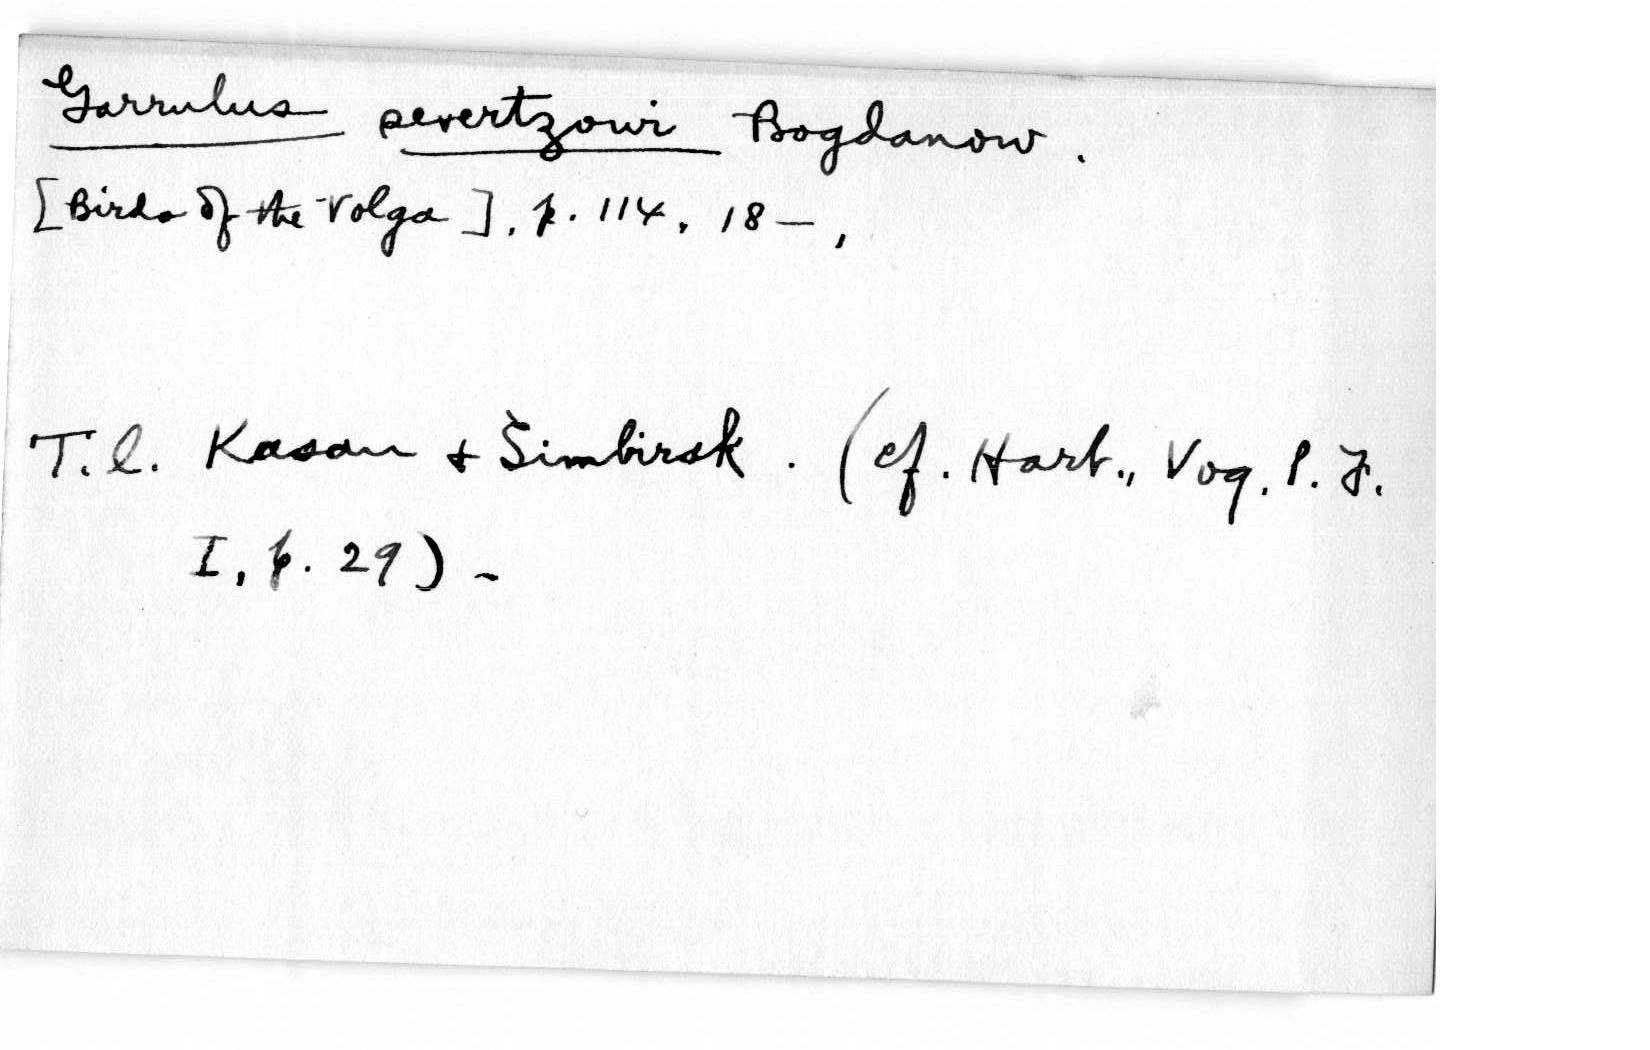 Garrulus severtzowi Bogdanow.
[Birds of the Volga], p. 114, 18—,
T.l. Kasan & Simbirsk. (cf. Hart., Vog. P. F.
I, p. 29) -